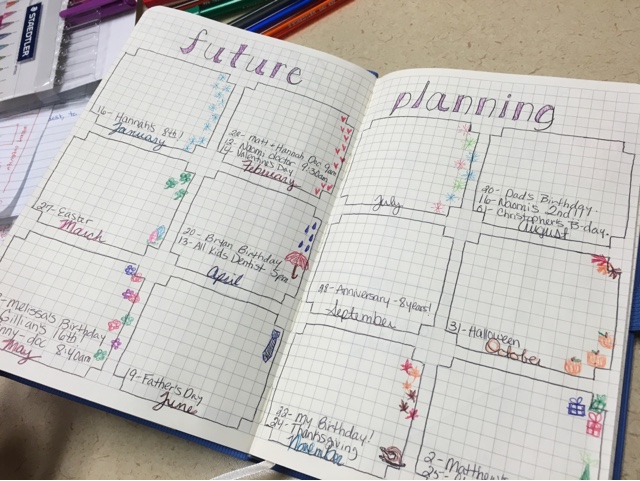 STAEDTLER
future
16- Hannah's 8th!
January
26- Matt + Hannah Doc 9am
12- Naomi doctor 9:30am
14- Valentine's Day
February
27- Easter
March
20- Bryan Birthday
13- All Kids Dentist 5pm
April
melissa's Birthday
Gillian's 16th!
doc 8:40am
May
19- Father's Day
June
planning
July
20- Dad's Birthday
16- Naomi's 2nd
Christopher's B-day
August
28- Anniversary - 8 years!
September
31- Halloween
October
22- my Birthday!
24- Thanksgiving
November
2- Matthew's
25-